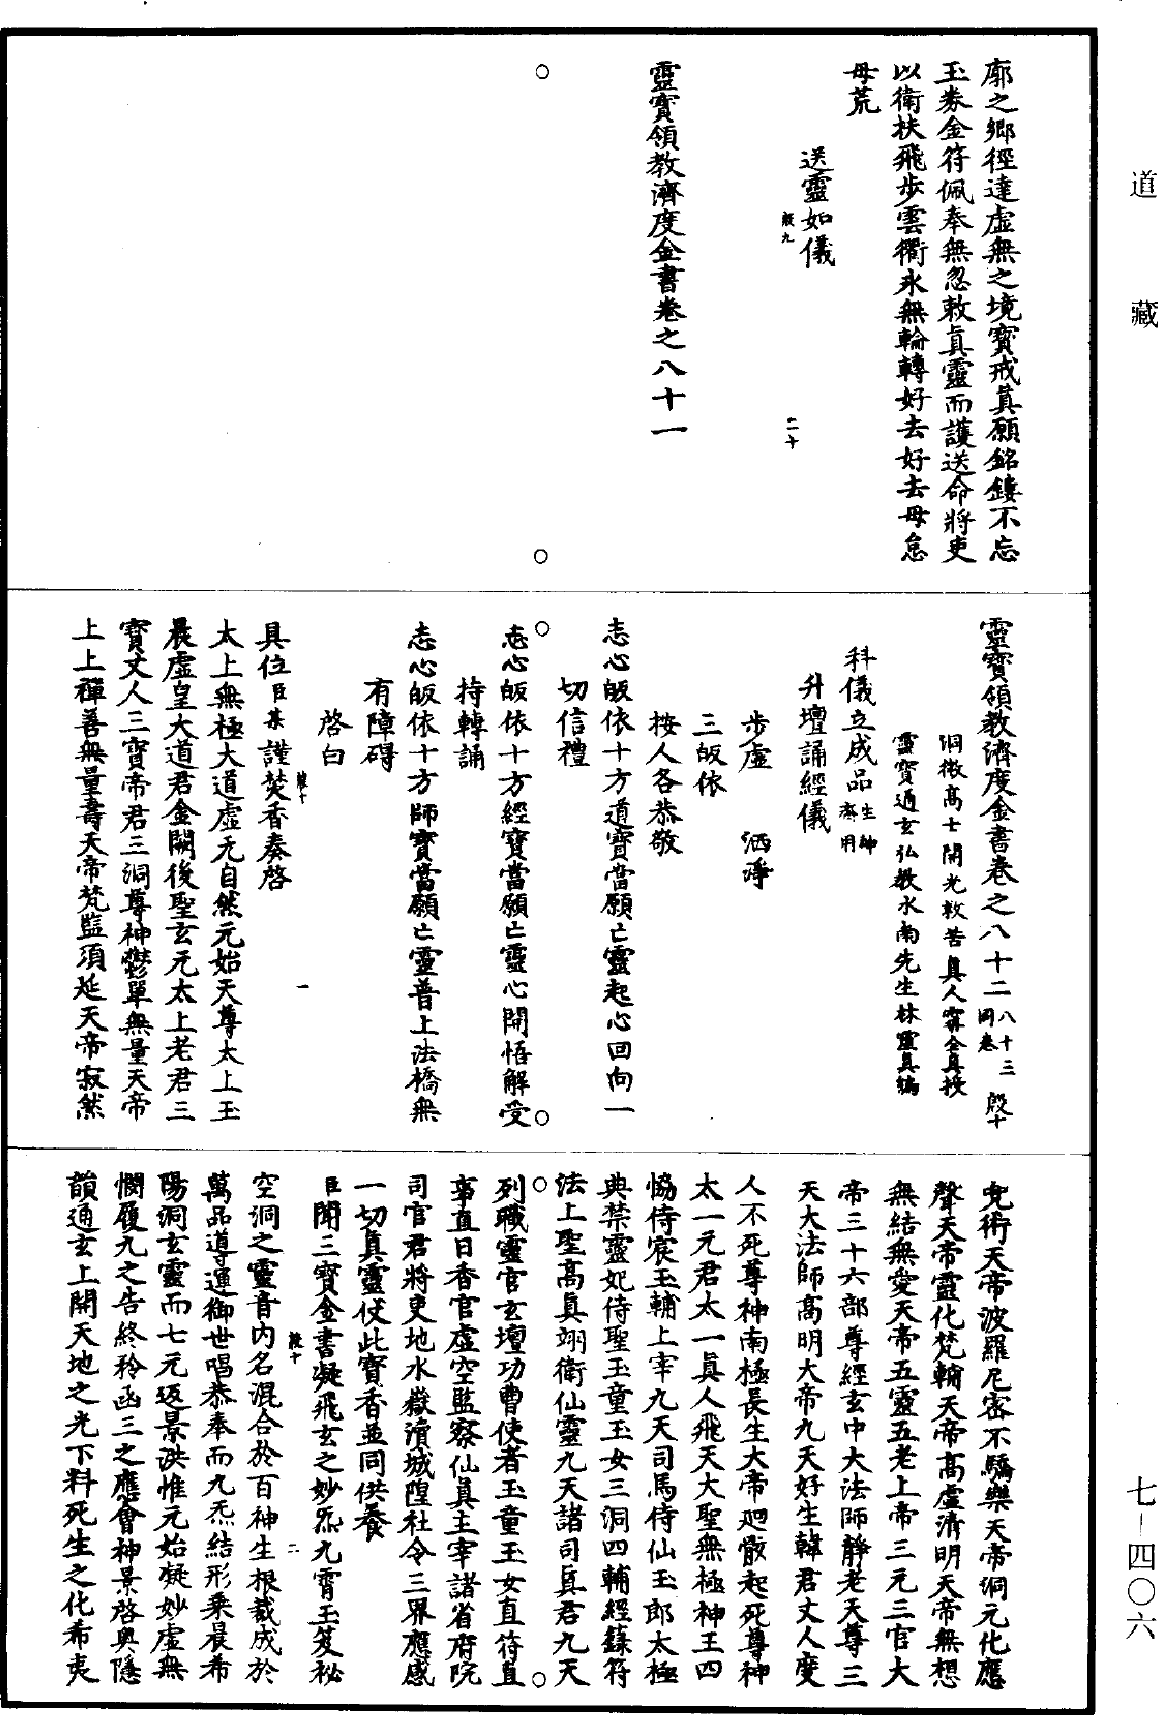 道藏
七—四〇六
廓之鄉徑達虛無之境寶戒真願銘鏤不忘
玉券金符佩奉無忽敕真靈而護送命將吏
以衛扶飛步雲衢永無輪轉好去好去毋怠
毋荒
送靈如儀
殷九
二十
靈寶領教濟度金書卷之八十一
靈寶領教濟度金書卷之八十二 八十三同卷 殷十
洞微高士開光救苦真人甯全真授
靈寶通玄弘教水南先生林靈真編
科儀立成品生神齋用
升壇誦經儀
步虛 洒淨
三皈依
按人各恭敬
志心皈依十方道寶當願亡靈起心回向一
切信禮
志心皈依十方經寶當願亡靈心開悟解受
持轉誦
志心皈依十方師寶當願亡靈普上法橋無
有障碍
啓白
具位臣某謹焚香奏啓
殷十
一
太上無極大道虛无自然元始天尊太上玉
晨虛皇大道君金闕後聖玄元太上老君三
寶丈人三寶帝君三洞尊神鬱單無量天帝
上上禪善無量壽天帝梵監須延天帝寂然
兜術天帝波羅尼密不驕樂天帝洞元化應
聲天帝靈化梵輔天帝高虛清明天帝無想
無結無愛天帝五靈五老上帝三元三官大
帝三十六部尊經玄中大法師靜老天尊三
天大法師高明大帝九天好生韓君丈人度
人不死尊神南極長生大帝迴骸起死尊神
太一元君太一真人飛天大聖無極神王四
恊侍宸玉輔上宰九天司馬侍仙玉郎太極
典禁靈妃侍聖玉童玉女三洞四輔經籙符
法上聖高真翊衛仙靈九天諸司真君九天
列職靈官玄壇功曹使者玉童玉女直符直
事直日香官虛空監察仙真主宰諸省府院
司官君將吏地水嶽瀆城隍社令三界應感
一切真靈仗此寶香並同供養
臣聞三寶金書凝飛玄之妙炁九霄玉笈祕
殷十
二
空洞之靈音內名混合於百神生根裁成於
萬品導運御世唱恭奉而九炁結形乘晨希
陽洞玄靈而七元返景洪惟元始凝妙虛無
憫履九之告終矜函三之應會神景啓輿隱
韻通玄上開天地之光下料死生之化希夷